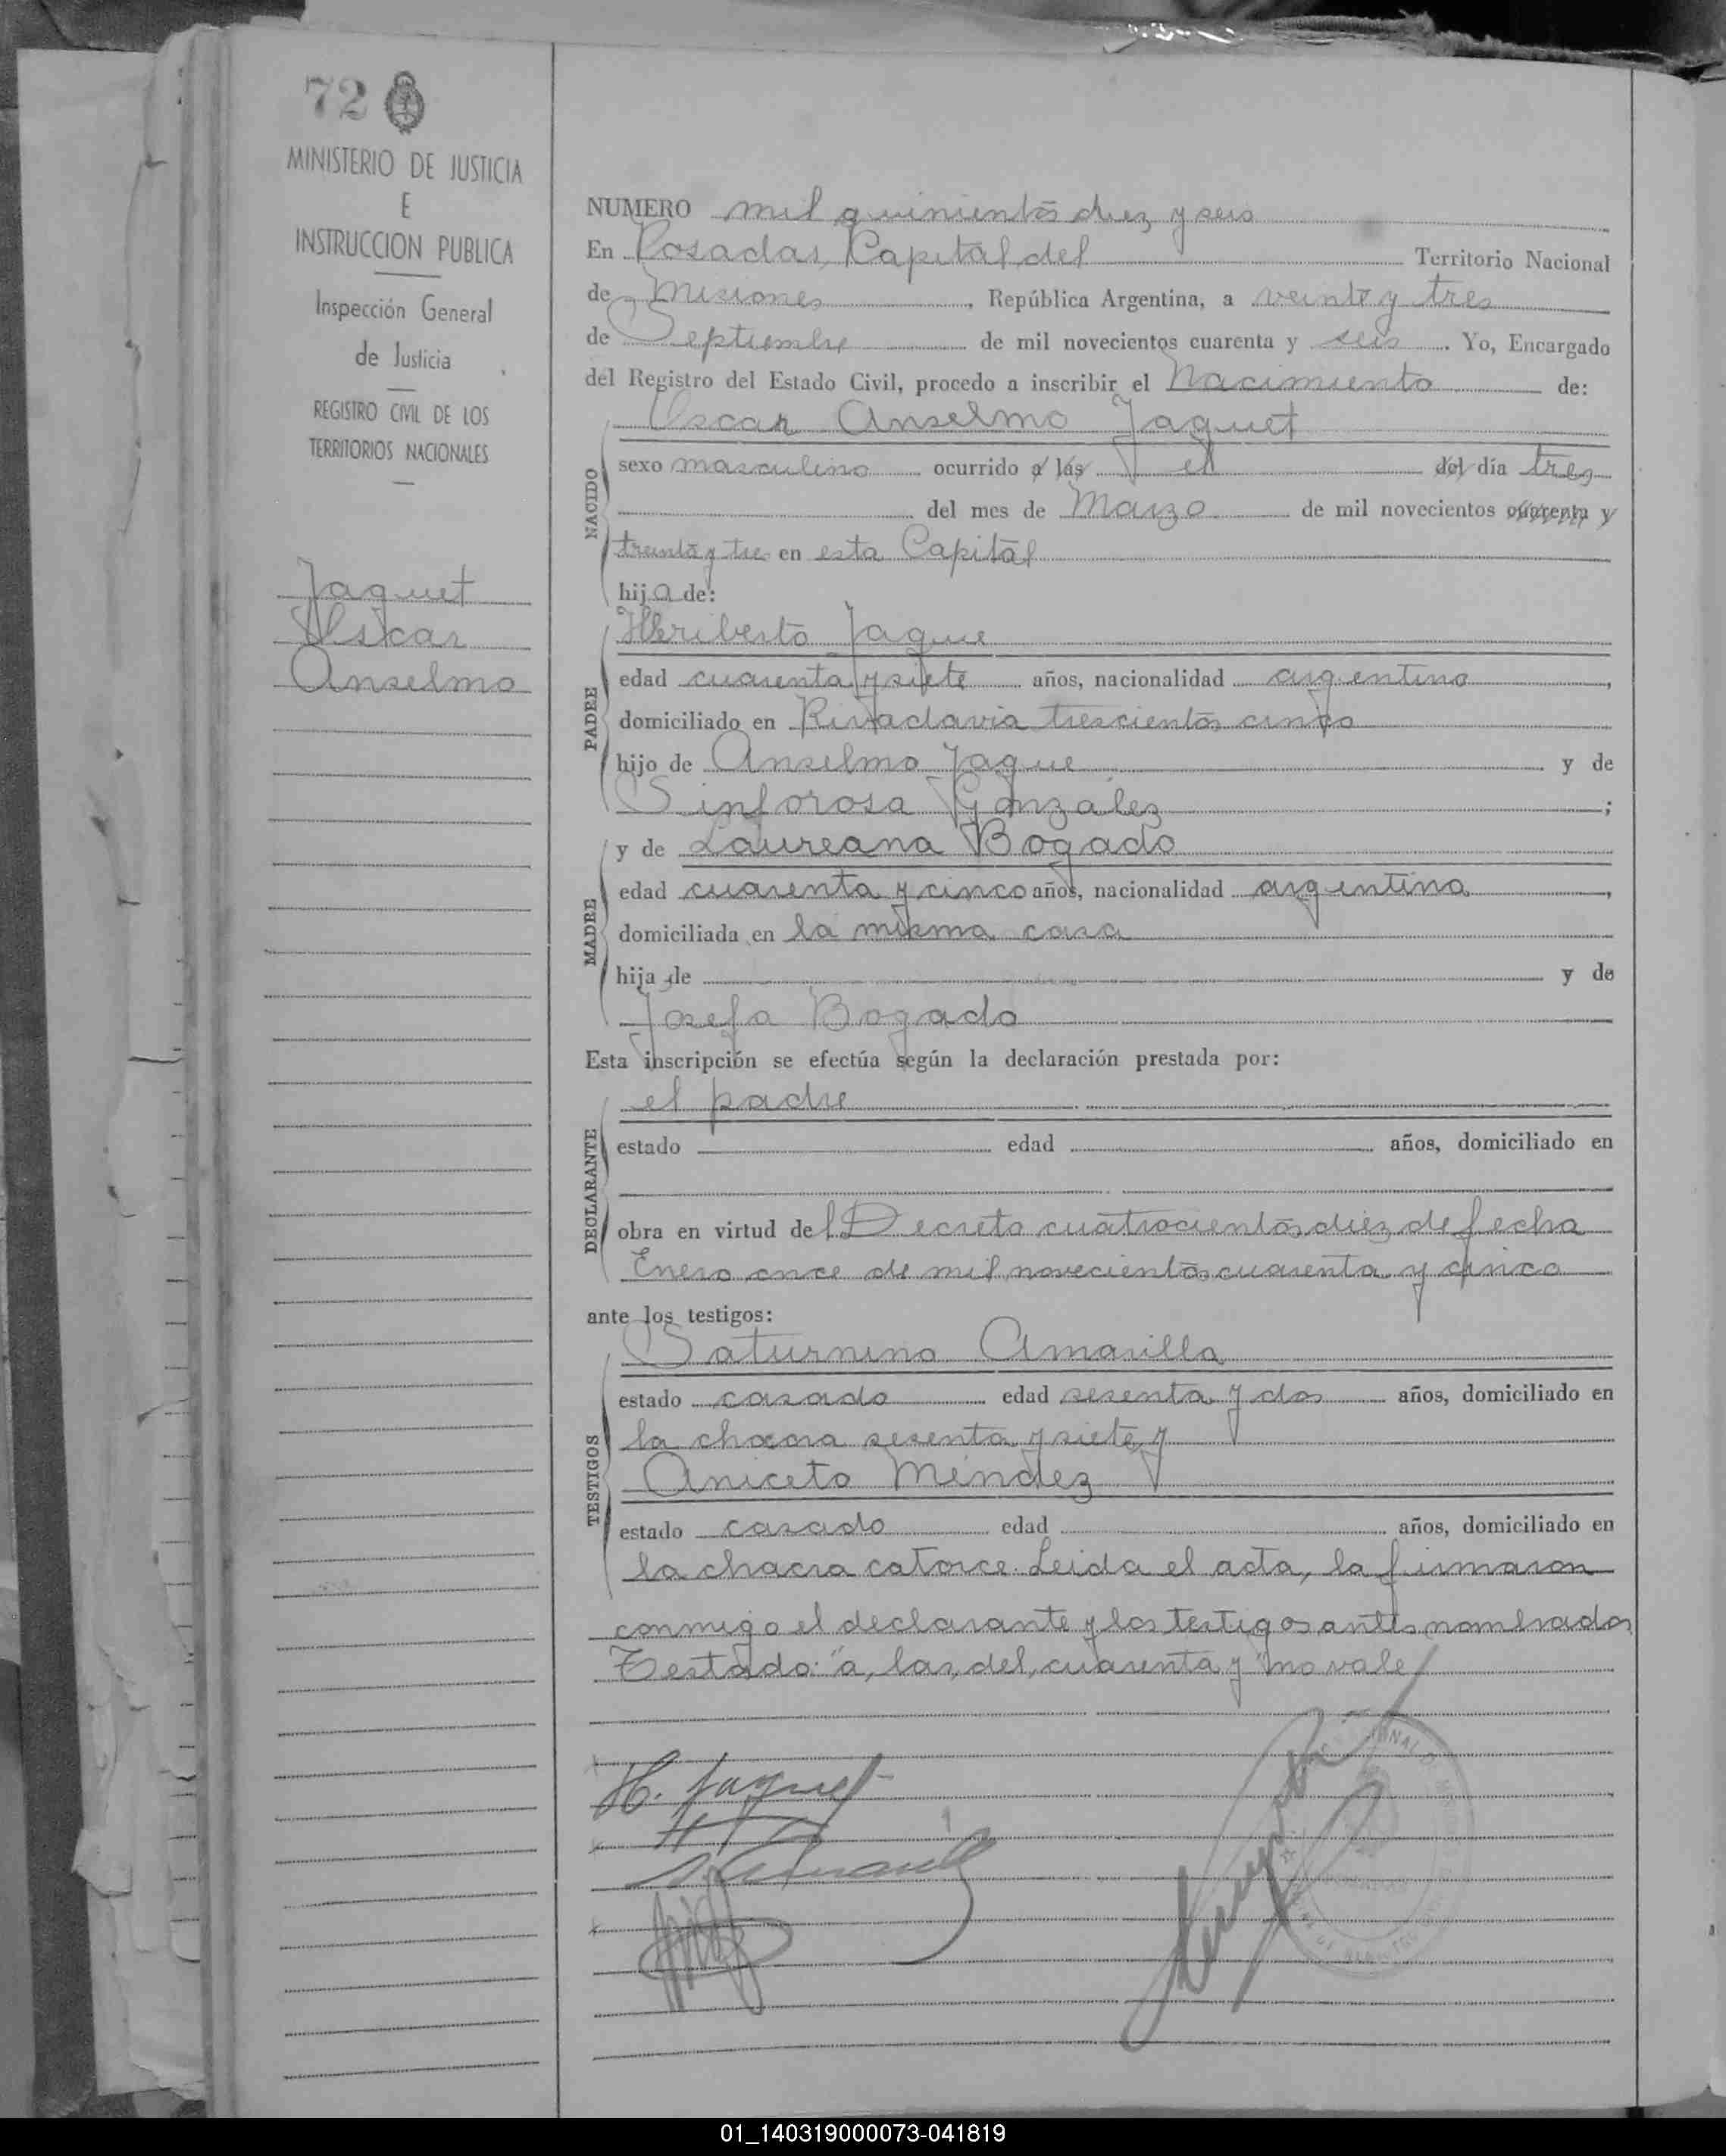 72
MINISTERIO DE JUSTICIA
E
INSTRUCCION PUBLICA
Inspección General
de Justicia
REGISTRO CIVIL DE LOS
TERRITORIOS NACIONALES
Jaquet
Oscar
Anselmo
NUMERO mil quinientos diez y seis
En Posadas, Capital del Territorio Nacional
de Misiones, República Argentina, a veinte y tres
de Septiembre de mil novecientos cuarenta y seis. Yo, Encargado
del Registro del Estado Civil, procedo a inscribir el Nacimiento de:
Oscar Anselmo Jaquet
NACIDO
sexo masculino ocurrido a las el del día tres
del mes de Marzo de mil novecientos cuarenta y
treinta y tres en esta Capital
hijo de:
PADRE
Heriberto Jaque
edad cuarenta y siete años, nacionalidad argentino,
domiciliado en Rivadavia trescientos cinco
hijo de Anselmo Jaque y de
Sinforosa Gonzalez;
MADRE
y de Laureana Bogado
edad cuarenta y cinco años, nacionalidad argentina,
domiciliada en la misma casa
hija de y de
Josefa Bogado
Esta inscripción se efectúa según la declaración prestada por:
DECLARANTE
el padre
estado edad años, domiciliado en
obra en virtud del Decreto cuatrocientos diez de fecha
Enero once de mil novecientos cuarenta y cinco
ante los testigos:
TESTIGOS
Saturnino Amarilla
estado casado edad sesenta y dos años, domiciliado en
la chacra sesenta y siete y
Aniceto Méndez
estado casado edad años, domiciliado en
la chacra catorce. Leida el acta, la firmaron
conmigo el declarante y los testigos antes nombrados
Testado: "a, las, del, cuarenta y" no vale
H. Jaquet
01_140319000073-041819